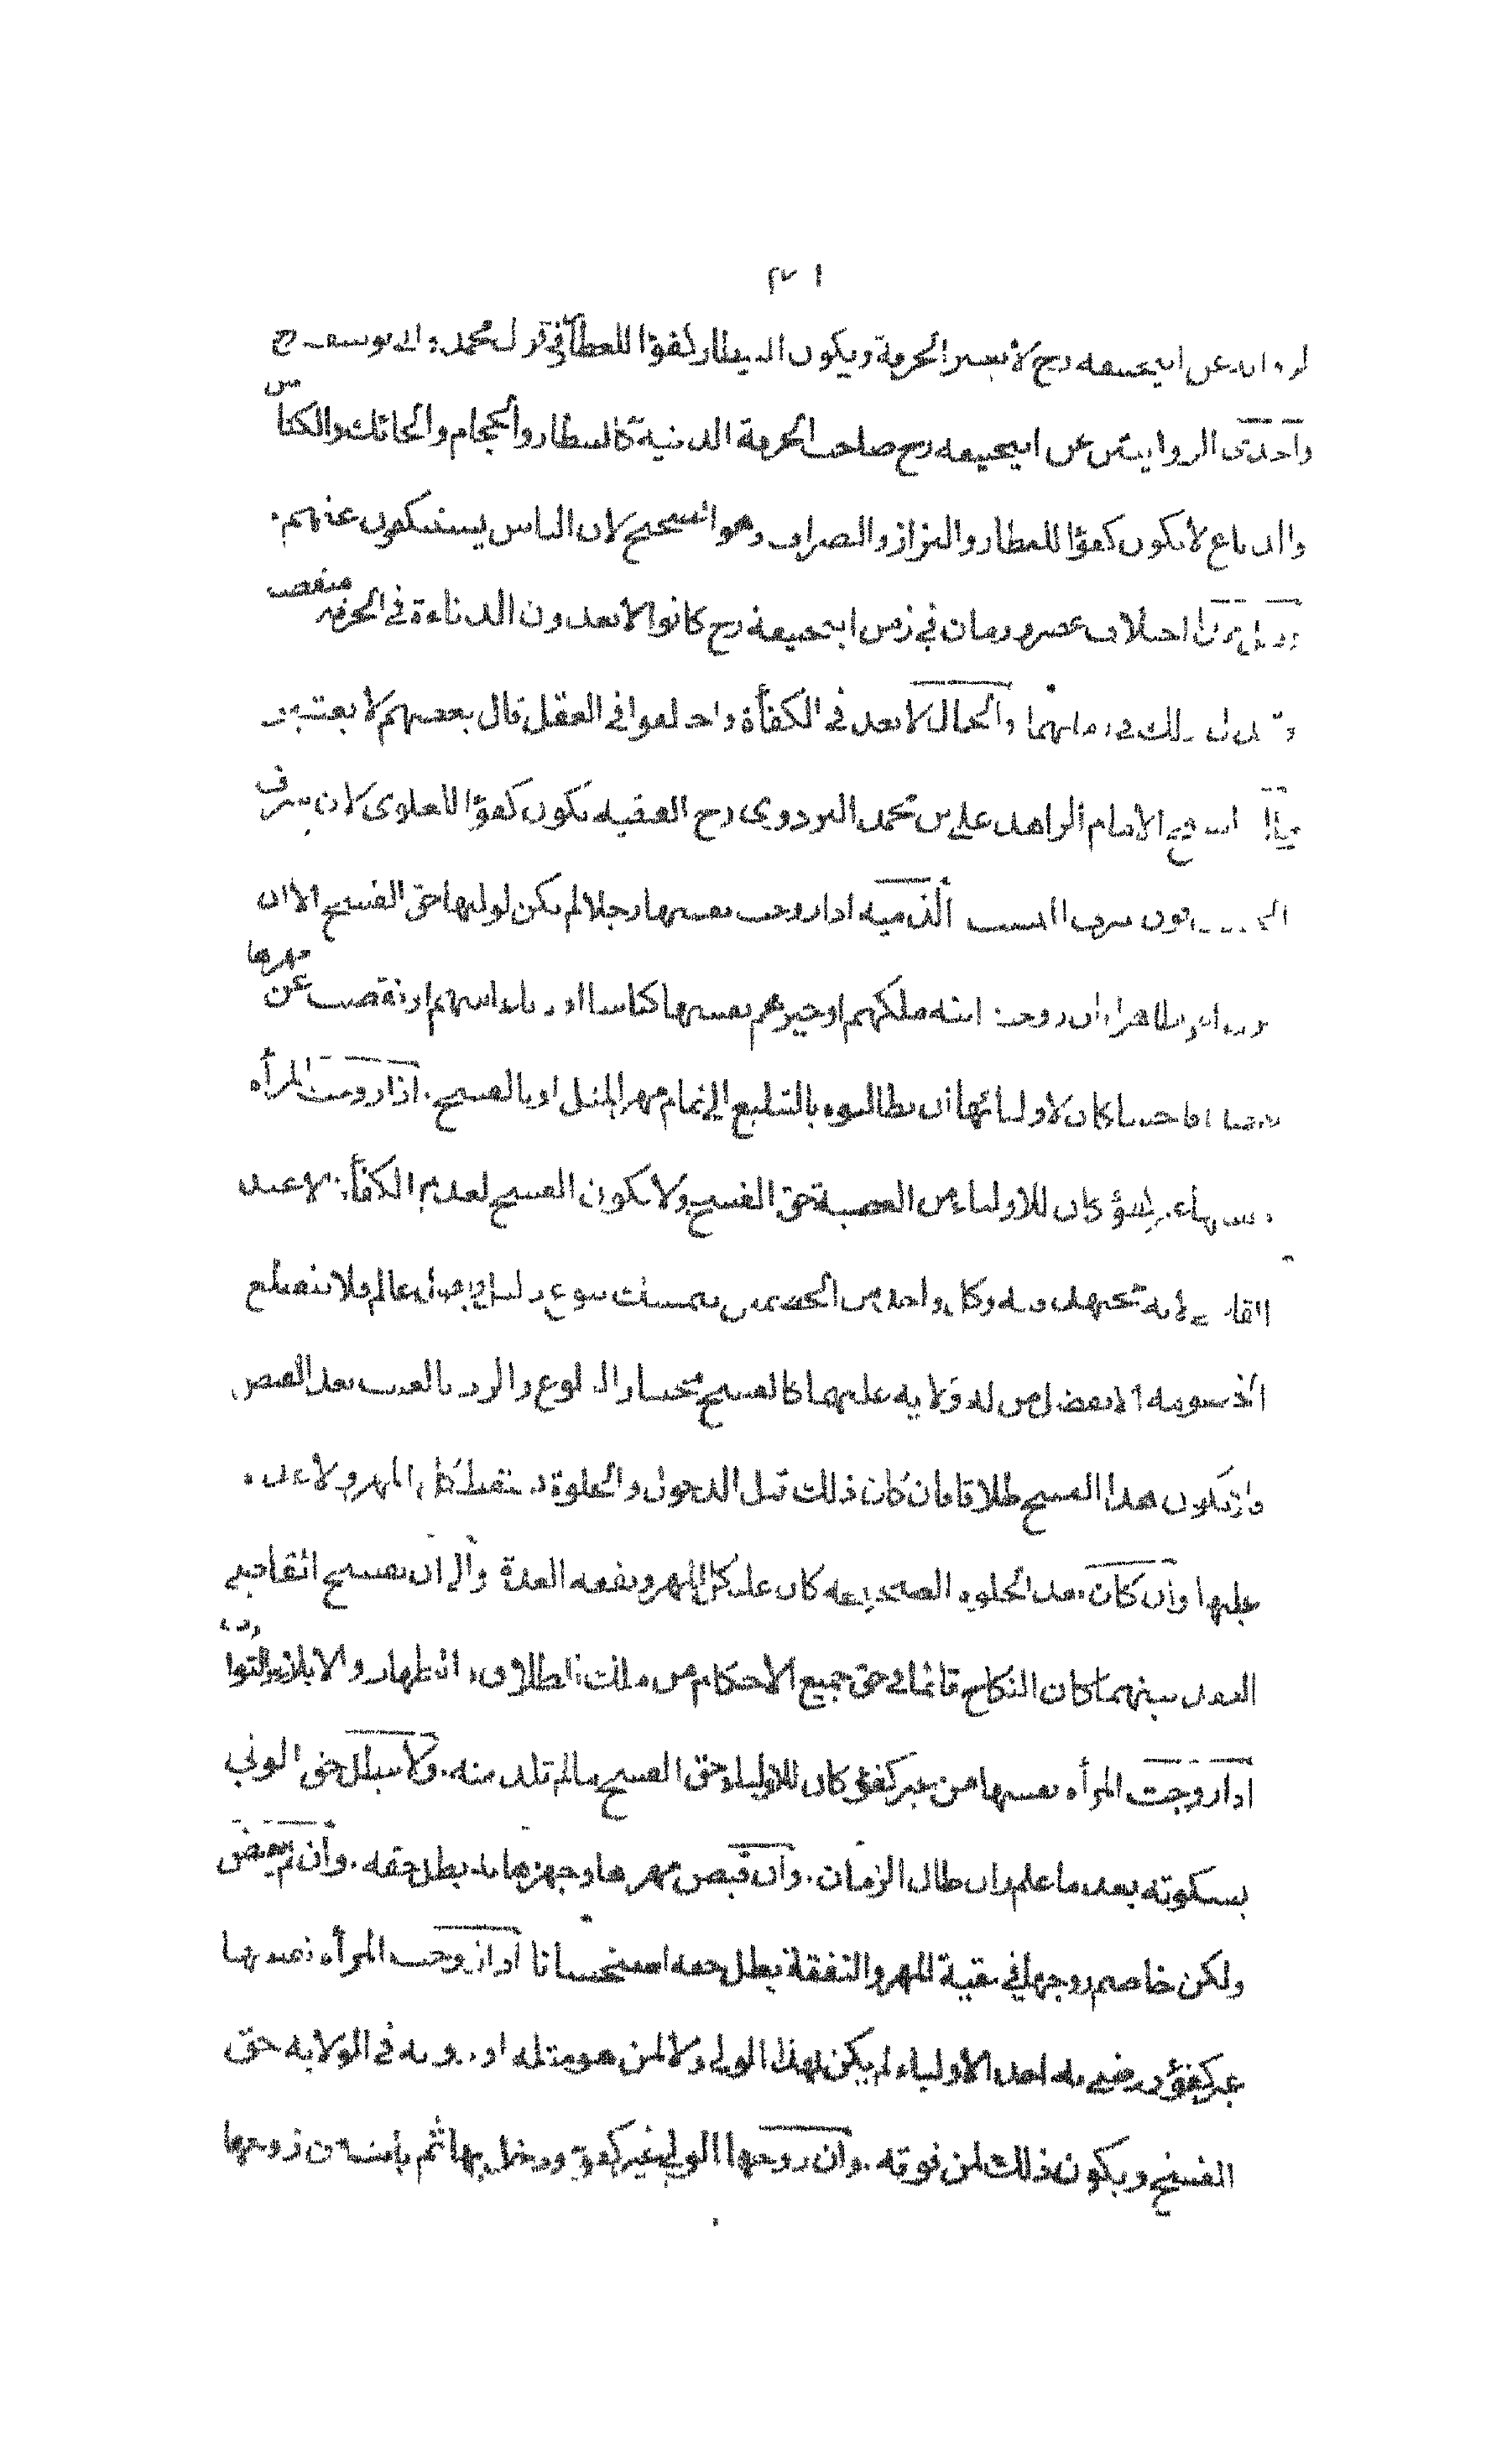 عن ابيحنيفه رح لا تعتبر الحرفة ويكون البيطار كفؤا للعطار في قول محمد وابى يوسف رح
واحدى الروايتين عن ابيحنيفه رح صاحب الحرفة الدنية كالبيطار والحجام والحائك والكناس
والدباغ لا يكون كفؤا للعطار والبزاز والصراف وهو الصحيح لان الناس يستنكفون عنهم
هذا اختلاف عصر وزمان في زمن ابيحنيفة رح كانوا لا يعدون الدناءة في الحرفة منقصة
ذلك في زمانهما والجمال لا يعد في الكفأة واختلفوا في العقل قال بعضهم لا يعتبر
الامام الزاهد علي بن محمد البزدوي رح الفقيه يكون كفؤا للعلوى لان شرف
فوق شرف النسب الذميه اذا زوجت نفسها رجلا لم يكن لوليها حق الفسخ الا ان
ظاهرا بان زوجت ابنة ملكهم او حبرهم نفسها كناسا او دباغا منهم او نقصت عن مهرها
فاحشا كان لاوليائها ان يطالبوه بالتبليغ الى تمام مهر المثل او بالفسخ. اذا زوجت المرأه
نفسها غير كفؤ كان للاولياء من العصبة حق الفسخ ولا يكون الفسخ لعدم الكفأة الا عند
القاضي لانه مجتهد فيه وكل واحد من الخصمين يتمسك بنوع دليل وبقول عالم فلا تنقطع
الخصومه الا بفصل من له ولاية عليهما كالفسخ بخيار البلوغ والرد بالعيب بعد القبض
ولا يكون هذا الفسخ طلاقا فان كان ذلك قبل الدخول والخلوة يسقط كل المهر ولا عدة
عليها وان كان بعد الخلوه الصحيحه كان عليه كل المهر ونفقه العدة والى ان يفسخ القاضي
العقد بينهما كان النكاح قائما في حق جميع الاحكام من ملك الطلاق والظهار والايلاء والتوارث
اذا زوجت المرأه نفسها من غير كفؤ كان للاولياء حق الفسخ ما لم تلد منه. ولا يبطل حق الولي
بسكوته بعد ما علم وان طال الزمان. وان قبض مهرها وجهزها به بطل حقه. وان لم يقبض
ولكن خاصم زوجها في بقية المهر والنفقة بطل حقه استحسانا اذا زوجت المرأه نفسها
غير كفؤ ورضي به احد الاولياء لم يكن لهذا الولي ولا لمن هو مثله او دونه في الولايه حق
الفسخ ويكون ذلك لمن فوقه. وان زوجها الولي غير كفؤ ودخل بها ثم بانت من زوجها